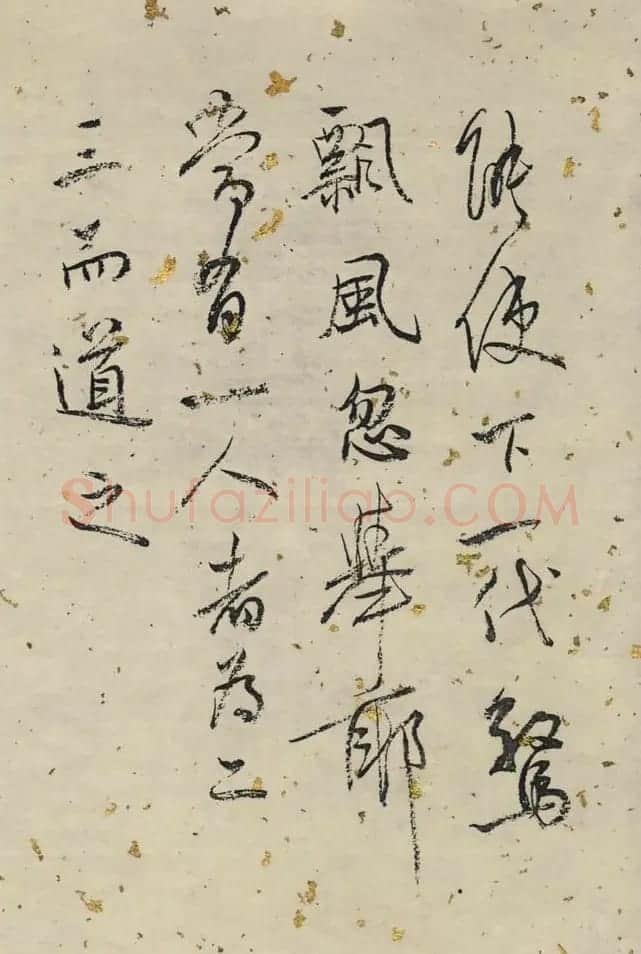 使下一代
飄風忽舉耶
一人者為二
三而道之
Shufaziliao.COM